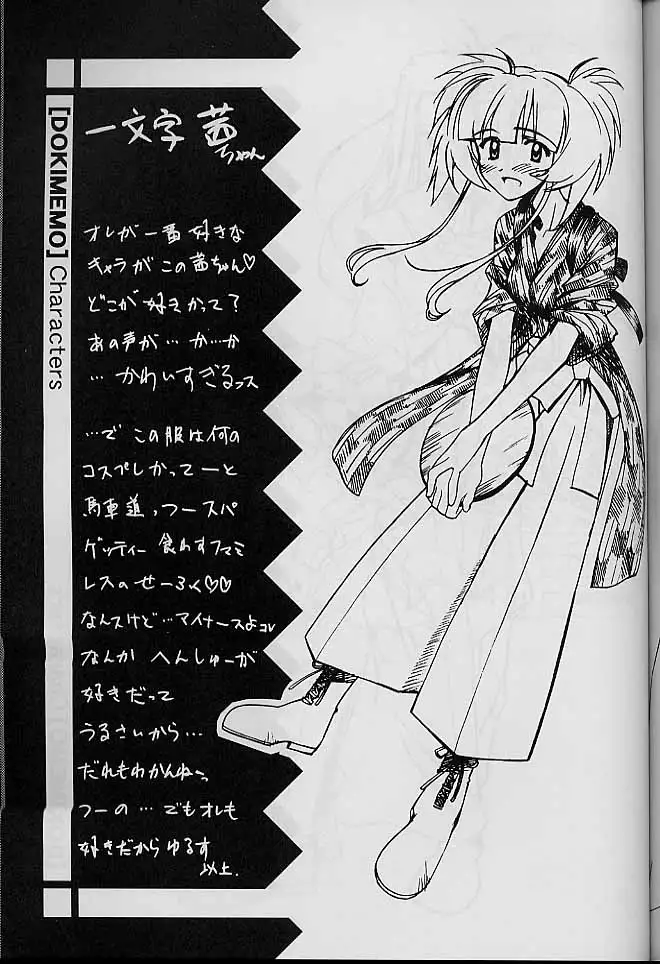 [DOKIMEMO] Characters
一文字 茜ちゃん
オレが一番好きな
キャラがこの茜ちゃん♡
どこが好きかって?
あの声が…か…か
…かわいすぎるっス
…でこの服は何の
コスプレかってーと
馬車道っつースパ
ゲッティー食わすファミ
レスのせーふく♡♡
なんスけど…マイナースよコレ
なんか へんしゅーが
好きだって
うるさいから…
だれもわかんねーっ
つーの…でもオレも
好きだからゆるす
以上.